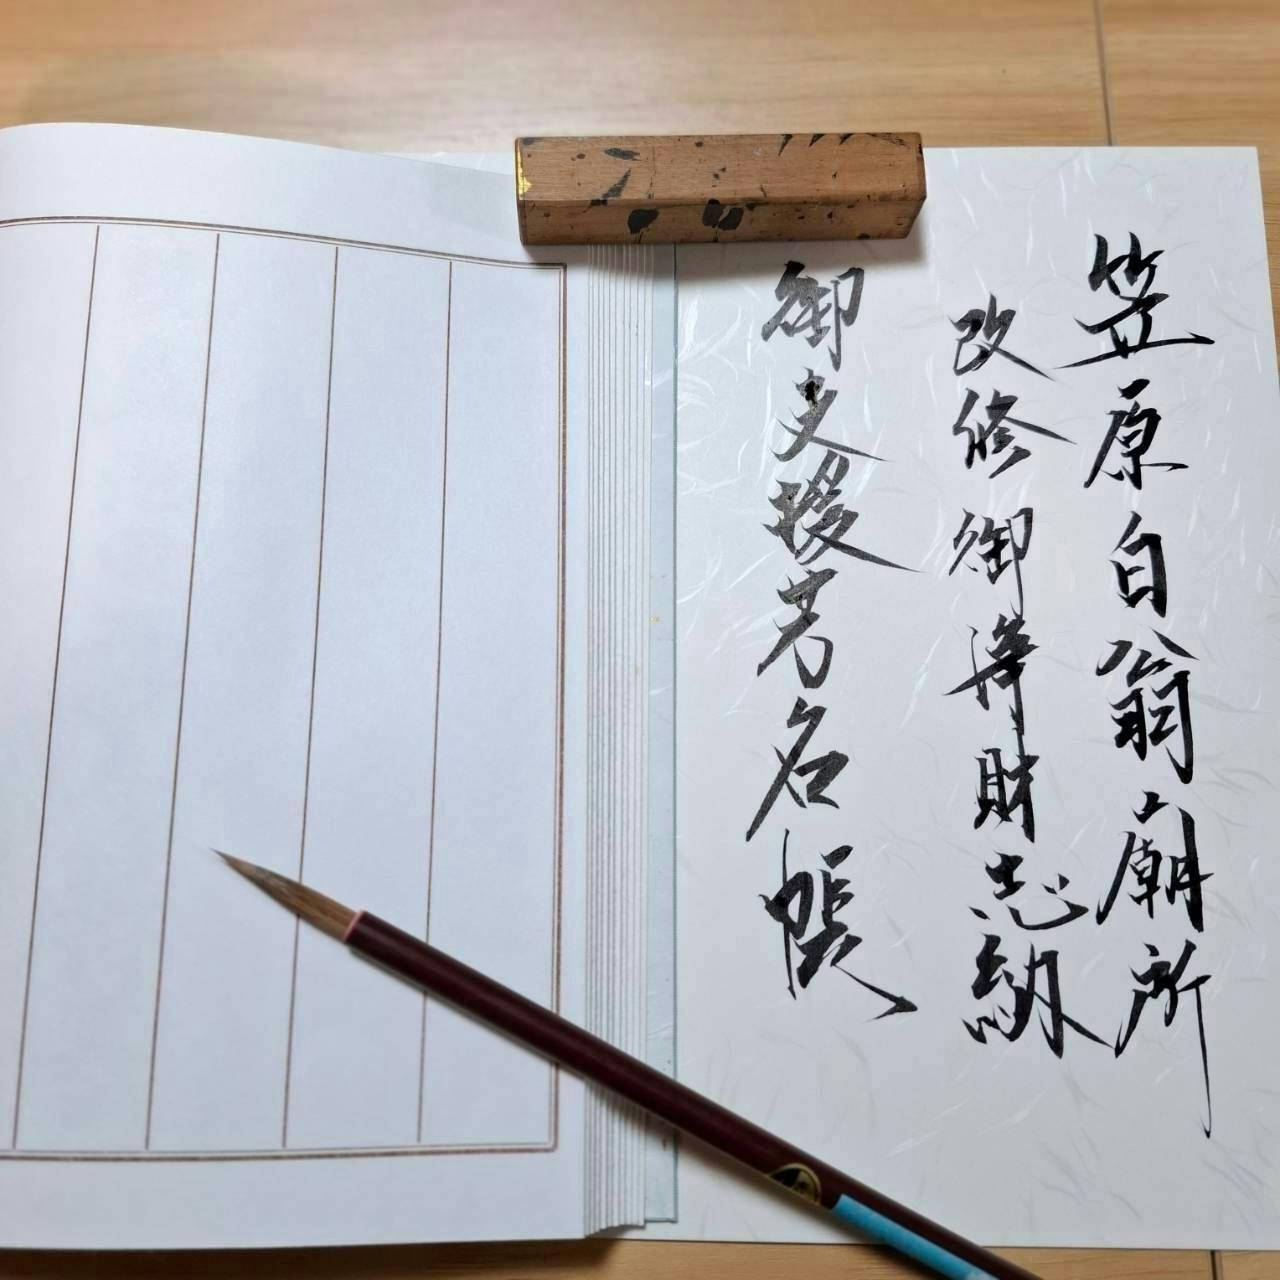 笠原白翁廟所
改修御浄財志納
御支援芳名帳